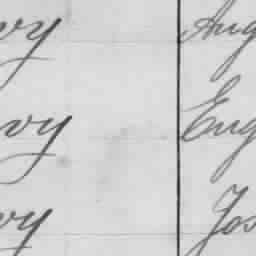 vy Aug
vy Eug
vy Jos